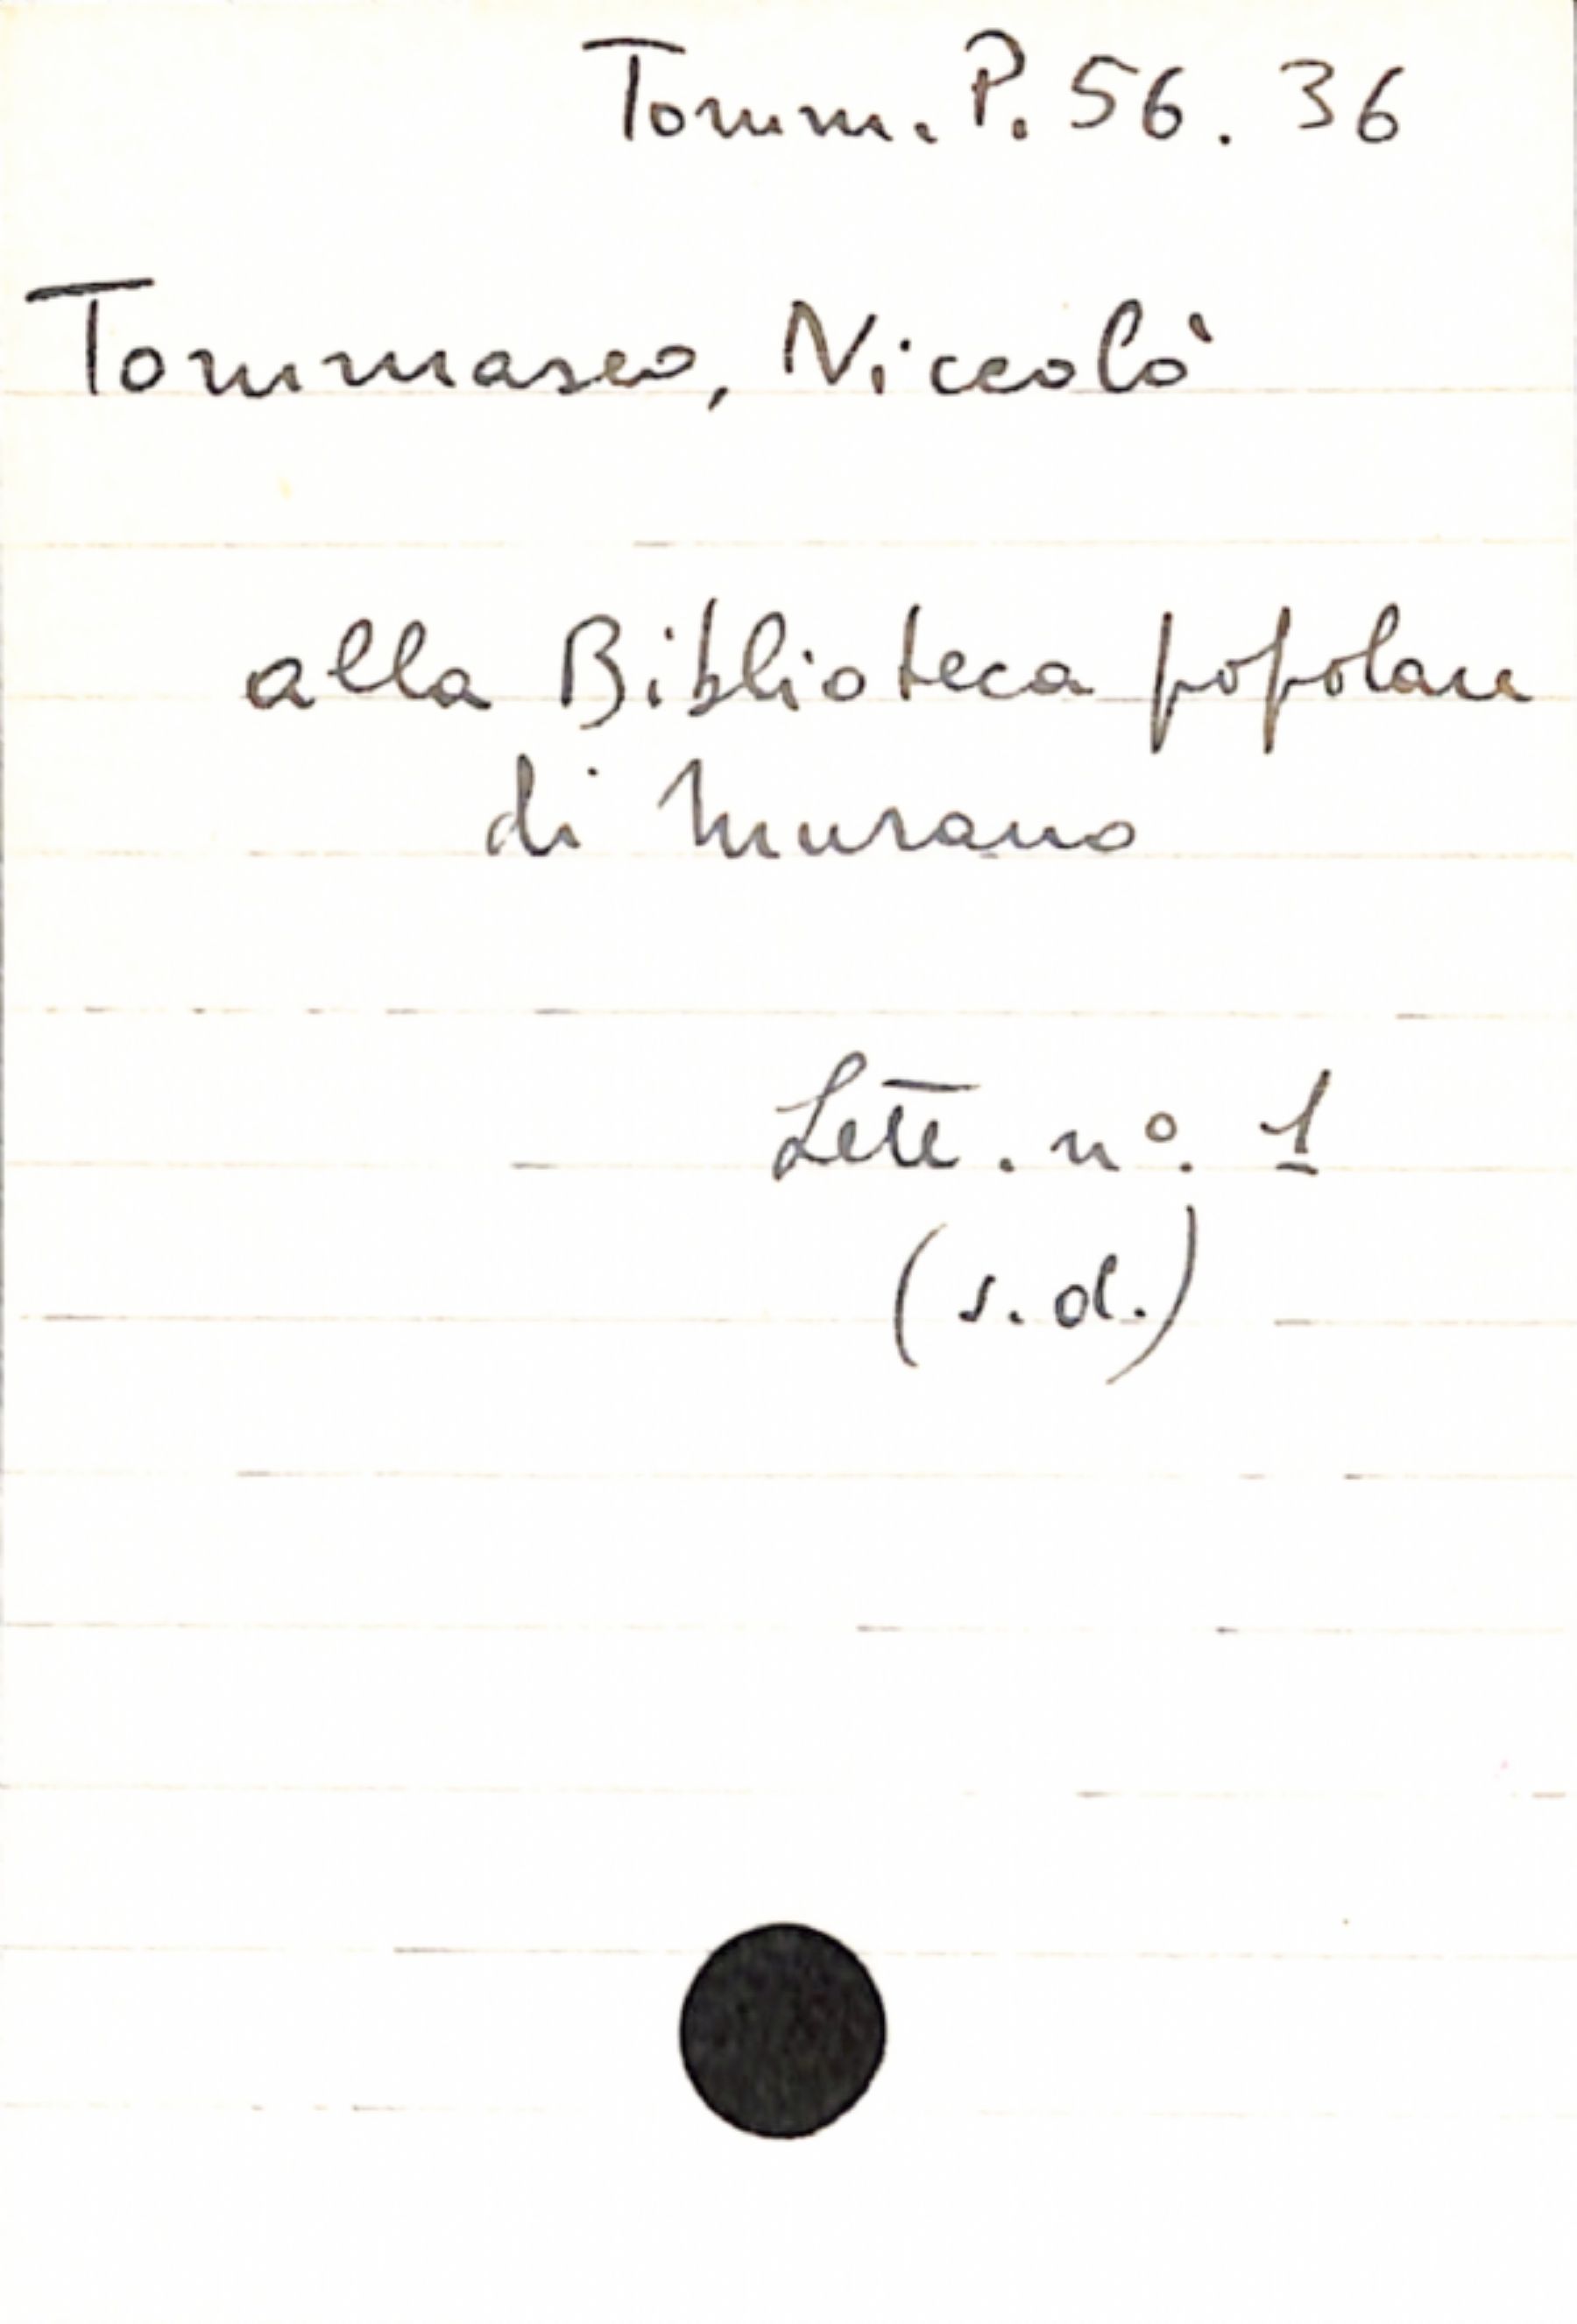 Tomm. P. 56. 36
Tommaseo, Niccolò
alla Biblioteca popolare
di Murano
Lett. nº. 1
(s.d.)